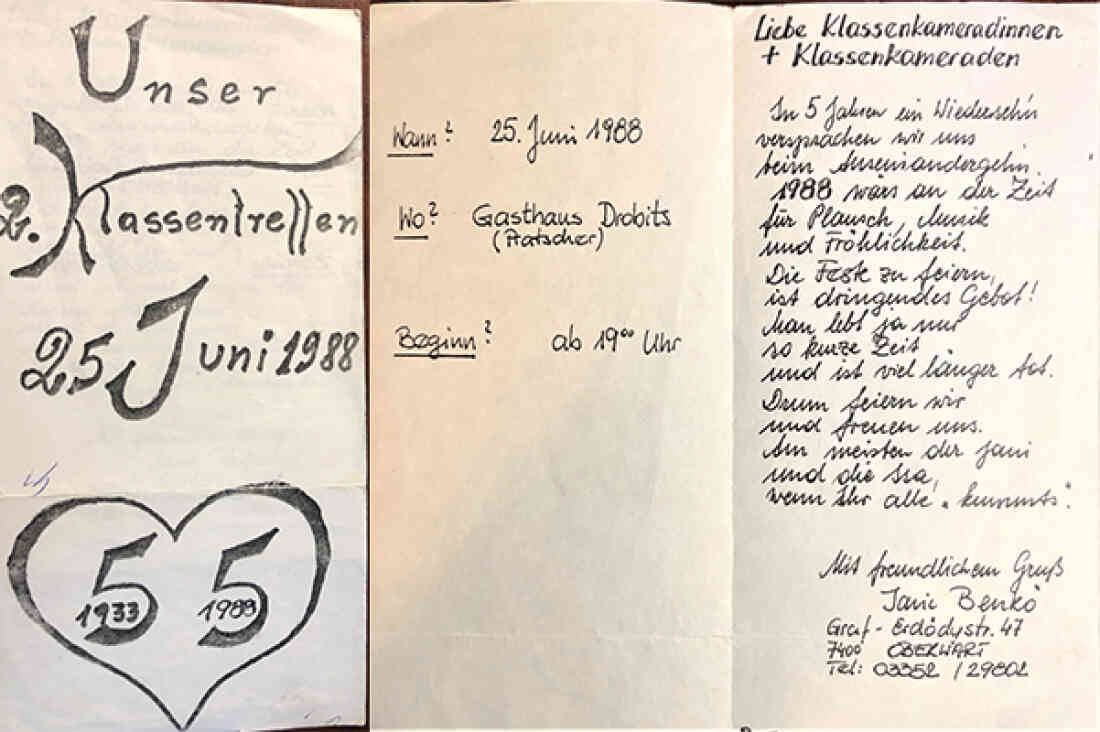 Unser
2. Klassentreffen
25 Juni 1988
55
1933 1988
Wann? 25. Juni 1988
Wo? Gasthaus Drobits
(Pratscher)
Beginn? ab 19⁰⁰ Uhr
Liebe Klassenkameradinnen
+ Klassenkameraden
In 5 Jahren ein Wiederseh'n
versprachen wir uns
beim Auseinandergeh'n.
1988 wärs an der Zeit
für Plausch, Musik
und Fröhlichkeit.
Die Feste zu feiern,
ist dringendes Gebot!
Man lebt ja nur
so kurze Zeit
und ist viel länger tot.
Drum feiern wir
und freuen uns.
Am meisten der Jani
und die Isa,
wenn Ihr alle „kummts".
Mit freundlichem Gruß
Jani Benkö
Graf-Erdödystr. 47
7400 OBERWART
Tel: 03352 / 29802